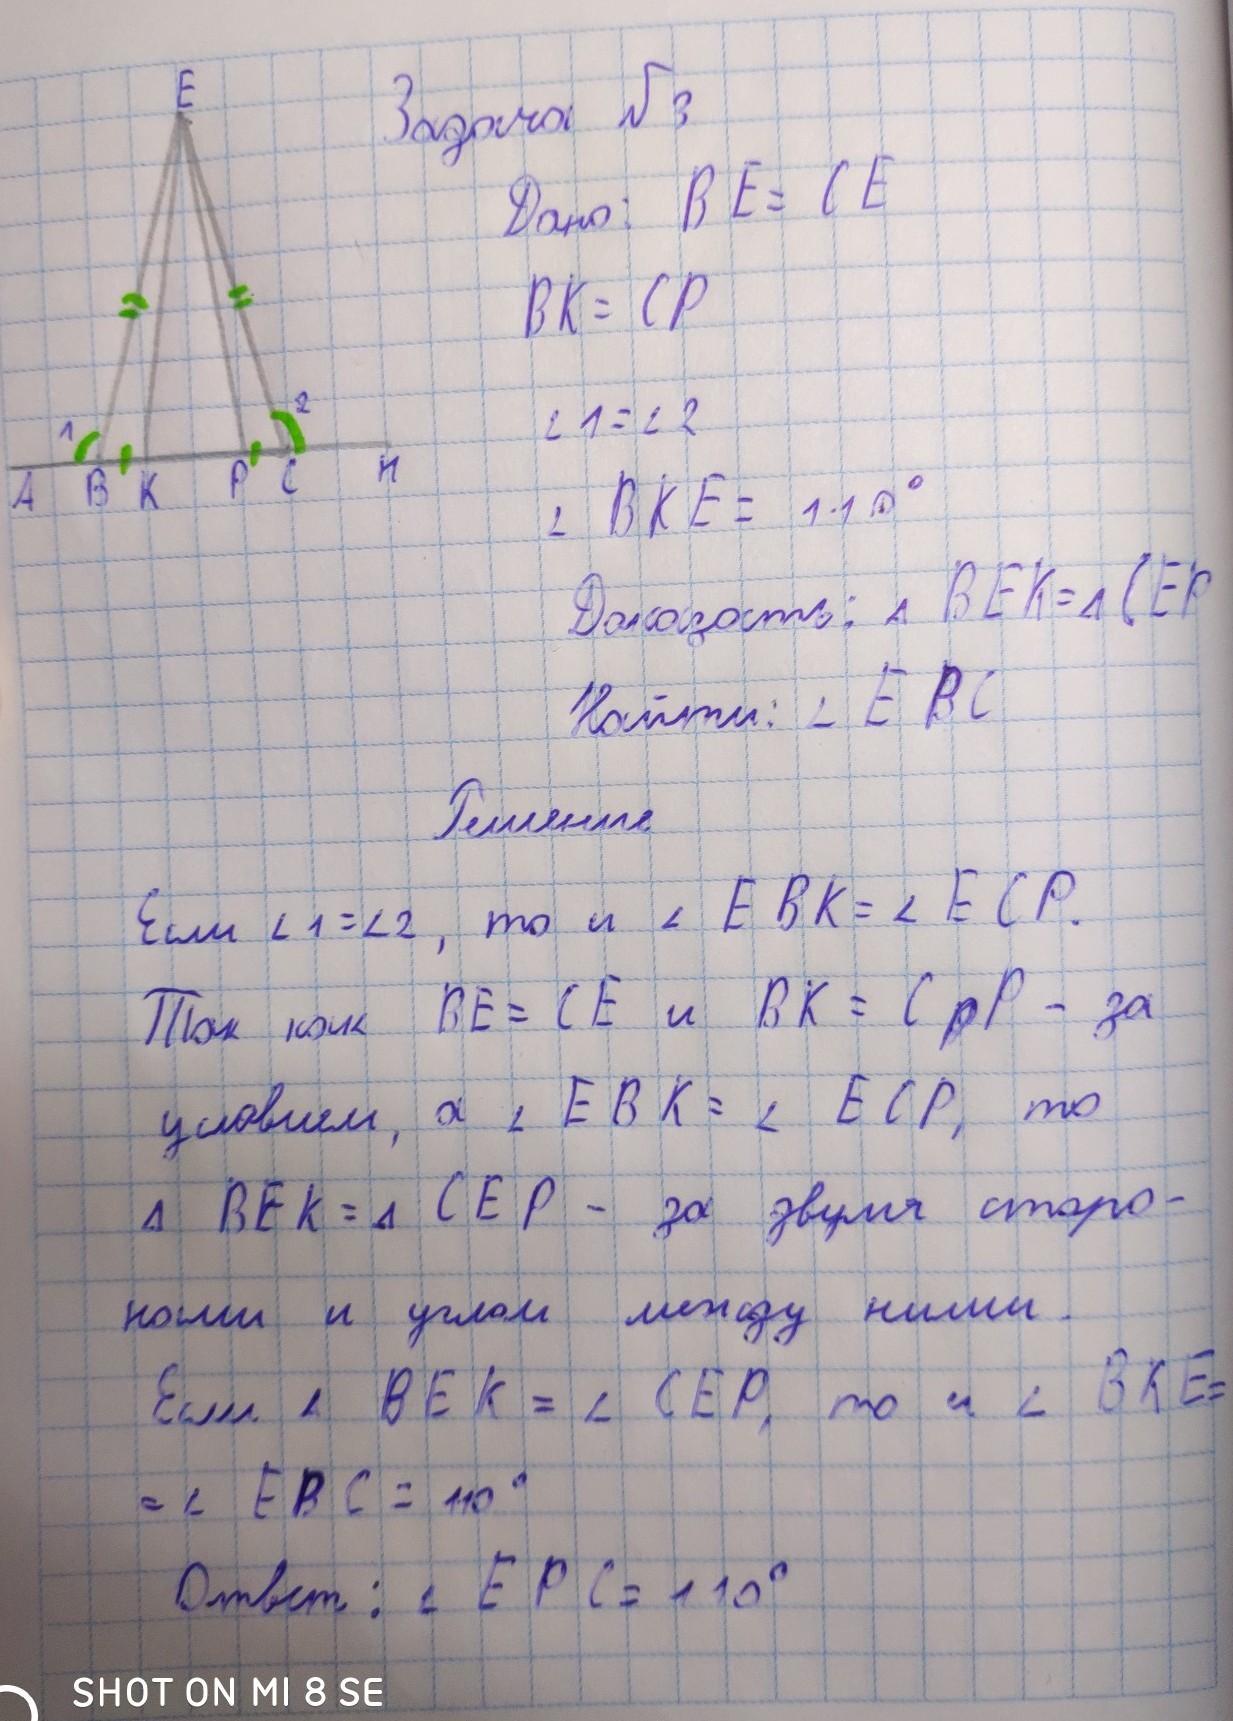 E
Задача №3
Дано: BE = CE
BK = CP
∠1 = ∠2
∠ BKE = 110°
1
2
A B K P C H
Доказать: Δ BEK = Δ CEP
Найти: ∠ EBC
Решение
Если ∠1=∠2, то и ∠ EBK = ∠ ECP.
Так как BE = CE и BK = CpP - за
условием, а ∠ EBK = ∠ ECP, то
Δ BEK = Δ CEP - за двумя сторо-
нами и углом между ними.
Если Δ BEK = ∠ CEP, то и ∠ BKE =
= ∠ EBC = 110°
Ответ: ∠ EPC = 110°
SHOT ON MI 8 SE